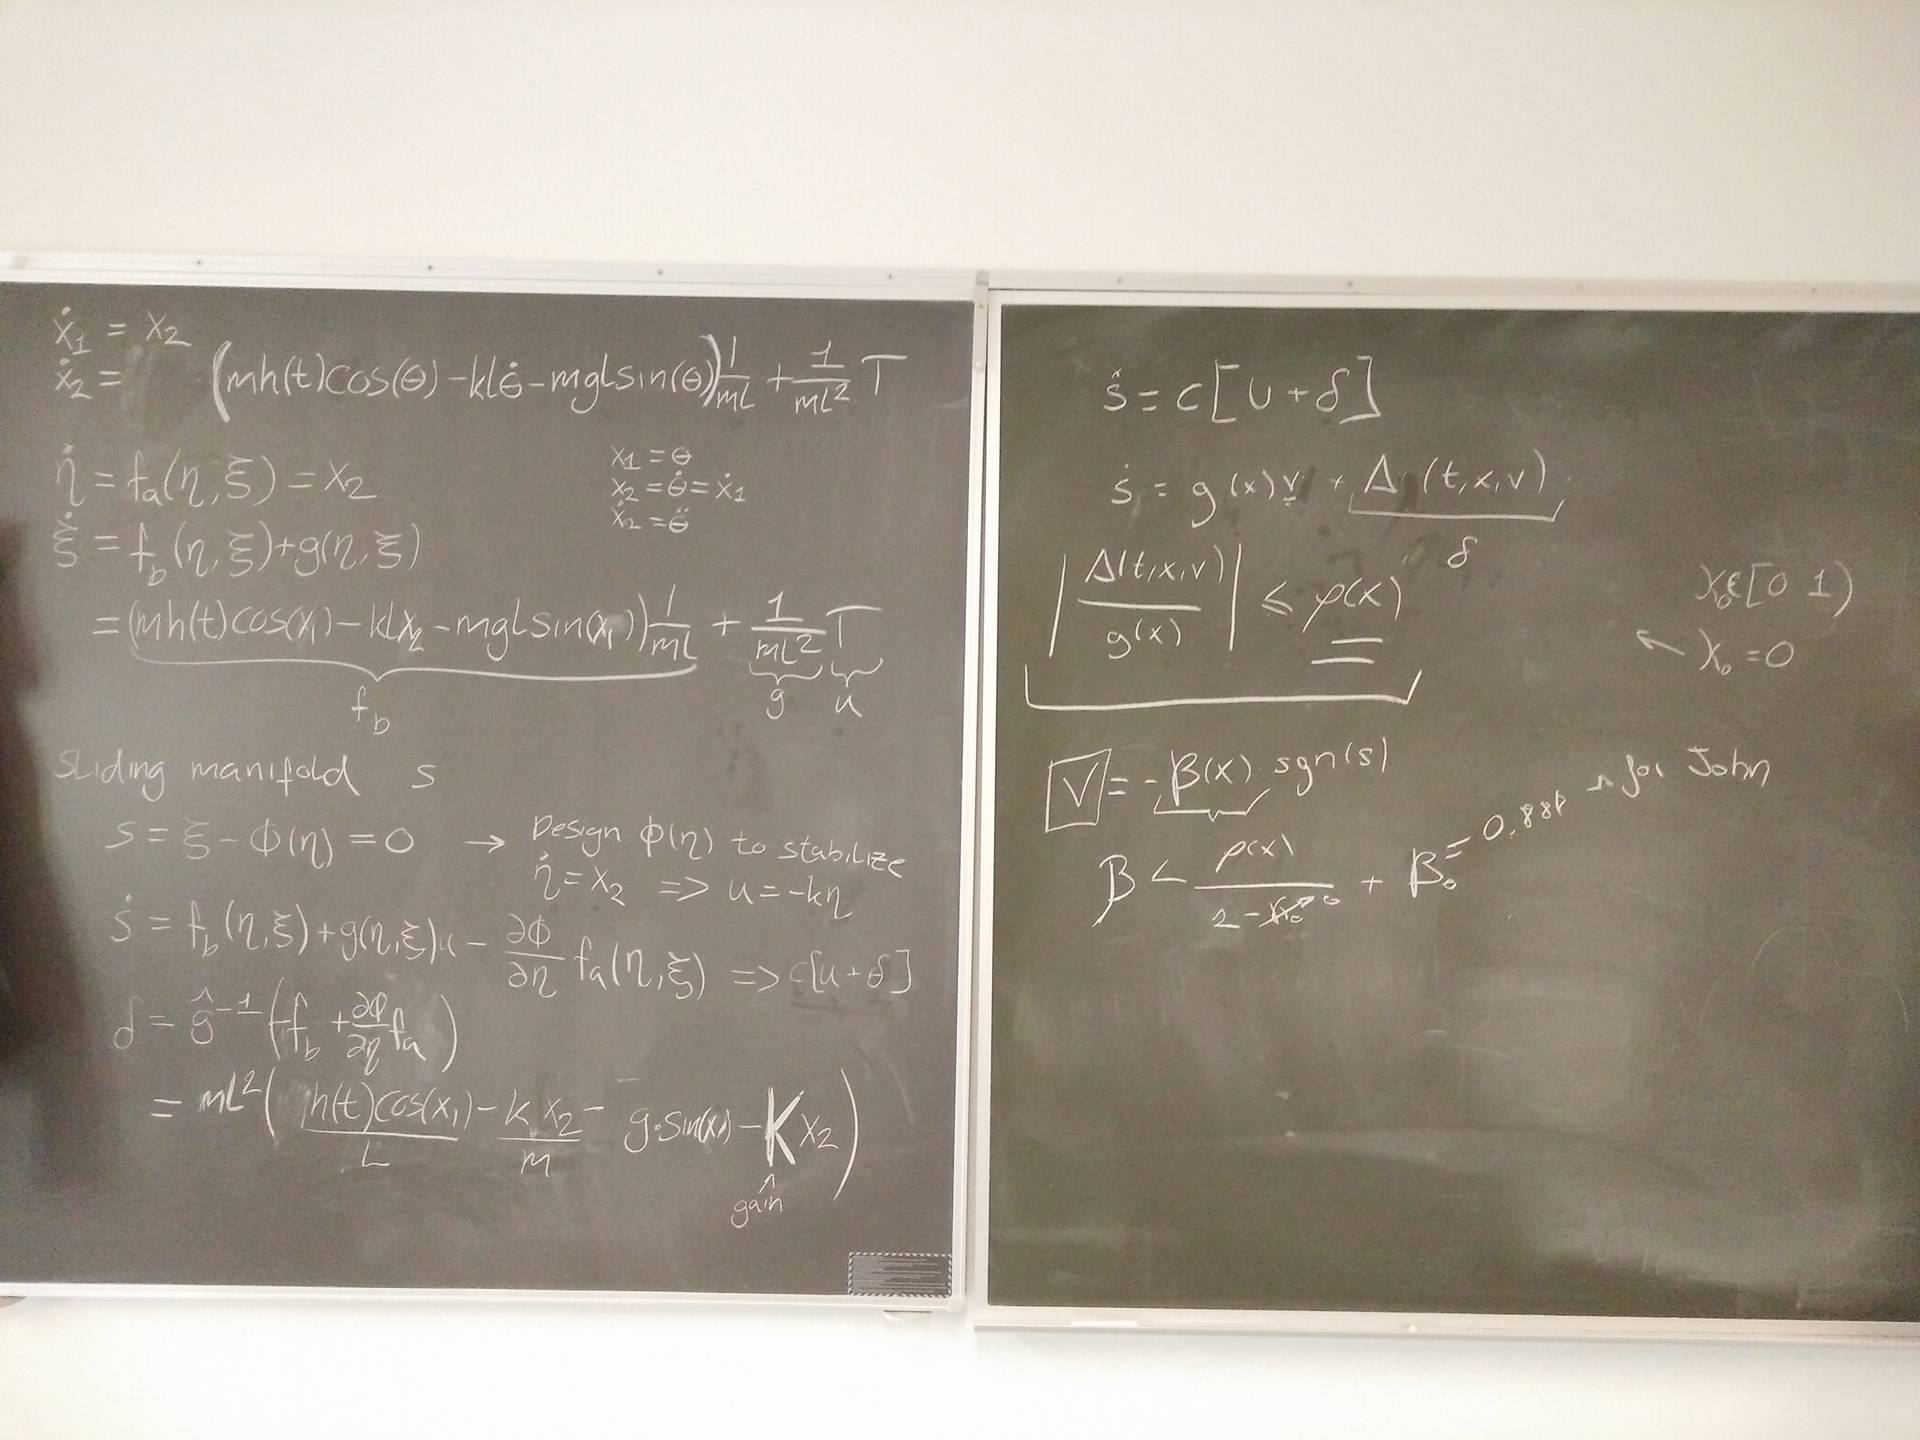 ẋ₁ = x₂
ẋ₂ = (mh(t)cos(θ) - klθ̇ - mgLsin(θ)) 1/mL + 1/mL² T
η̇ = fa(η, ξ) = x₂
x₁ = θ
x₂ = θ̇ = ẋ₁
ẋ₂ = θ̈
ξ̇ = f_b(η, ξ) + g(η, ξ)
= (mh(t)cos(x₁) - klx₂ - mgLsin(x₁)) 1/mL + 1/mL² T
f_b g u
Sliding manifold s
s = ξ - Φ(η) = 0 → Design Φ(η) to stabilize
η̇ = x₂ => u = -kη
ṡ = f_b(η, ξ) + g(η, ξ)u - ∂Φ/∂η fa(η, ξ) => c[u + δ]
δ = ĝ⁻¹(-f_b + ∂Φ/∂η fa)
= mL²( h(t)cos(x₁)/L - k x₂/m - g·sin(x₁) - K x₂)
gain
ṡ = c[u + δ]
ṡ = g(x)v + Δ(t, x, v)
δ
|Δ(t, x, v)/g(x)| ≤ ρ(x)
X₀ε[0 1)
← X₀ = 0
V = -β(x) sgn(s)
β < ρ(x)/2-X₀ ⁰ + β₀ = for John